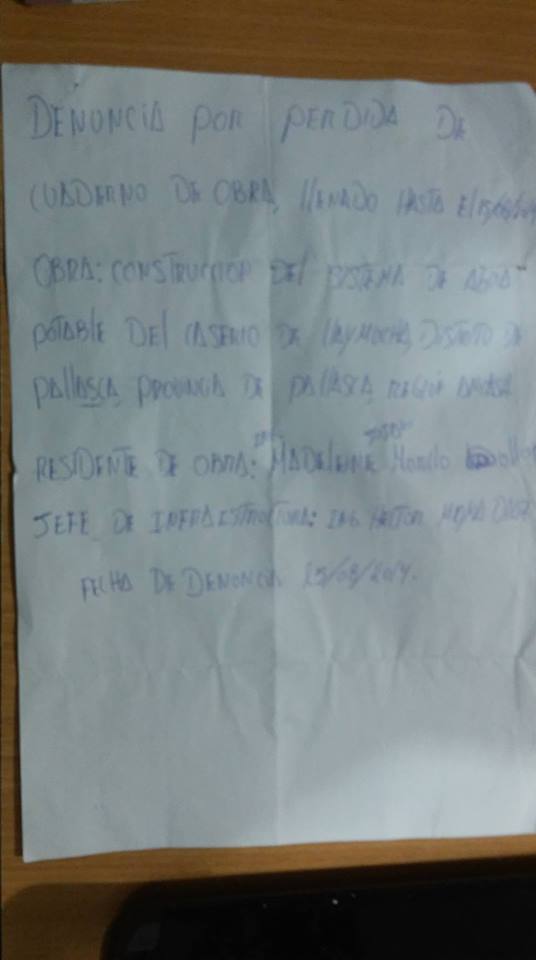 DENUNCIA POR PERDIDA DE
CUADERNO DE OBRA, LLENADO HASTA El
OBRA: CONSTRUCCION DEL SISTEMA DE AGUA
POTABLE DEL CASERIO DE DISTRITO DE
PALLASCA, PROVINCIA DE PALLASCA, REGION ANCASH
RESIDENTE DE OBRA: ING. MADELEINE
JEFE DE INFRAESTRUCTURA: ING. HECTOR
FECHA DE DENUNCIA